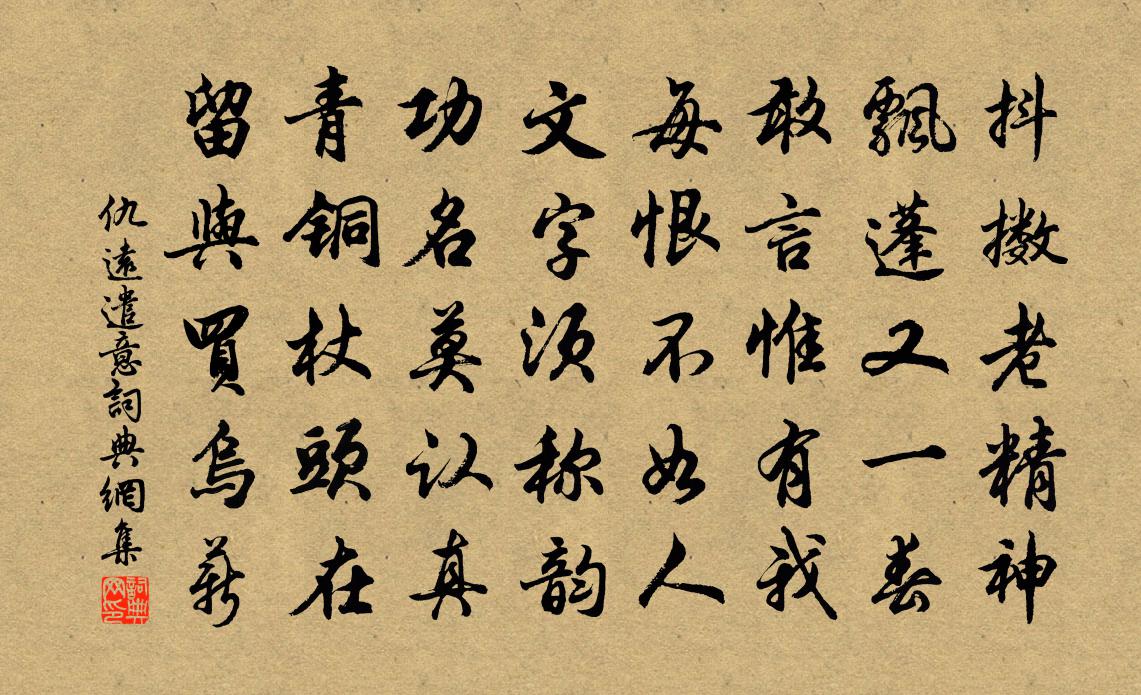 抖擻老精神
飄蓬又一春
敢言惟有我
每恨不如人
文字须称韵
功名莫认真
青銅杖頭在
留與買烏薪
仇遠遣意詞典網集
詞典网印